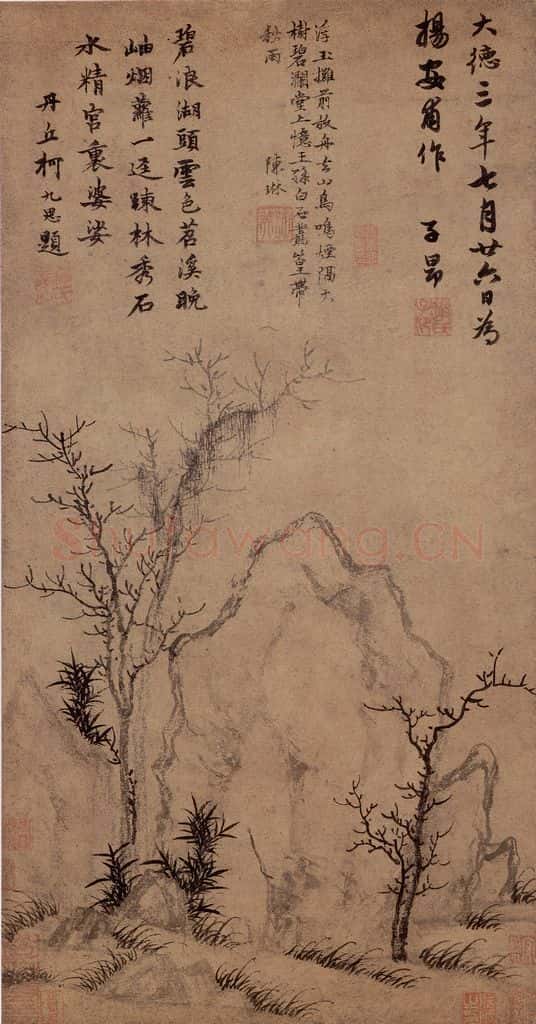 大德三年七月廿六日為
楊安甫作 子昂
浮玉灘前放舟去山鳥鳴煙隔大
樹碧瀾堂上憶王孫白石叢篁帶
秋雨 陳琳
碧浪湖頭雲色苕溪晚
岫烟蘿一逕疎林秀石
水精宮裏婆娑
丹丘柯九思題
Shufawang.CN